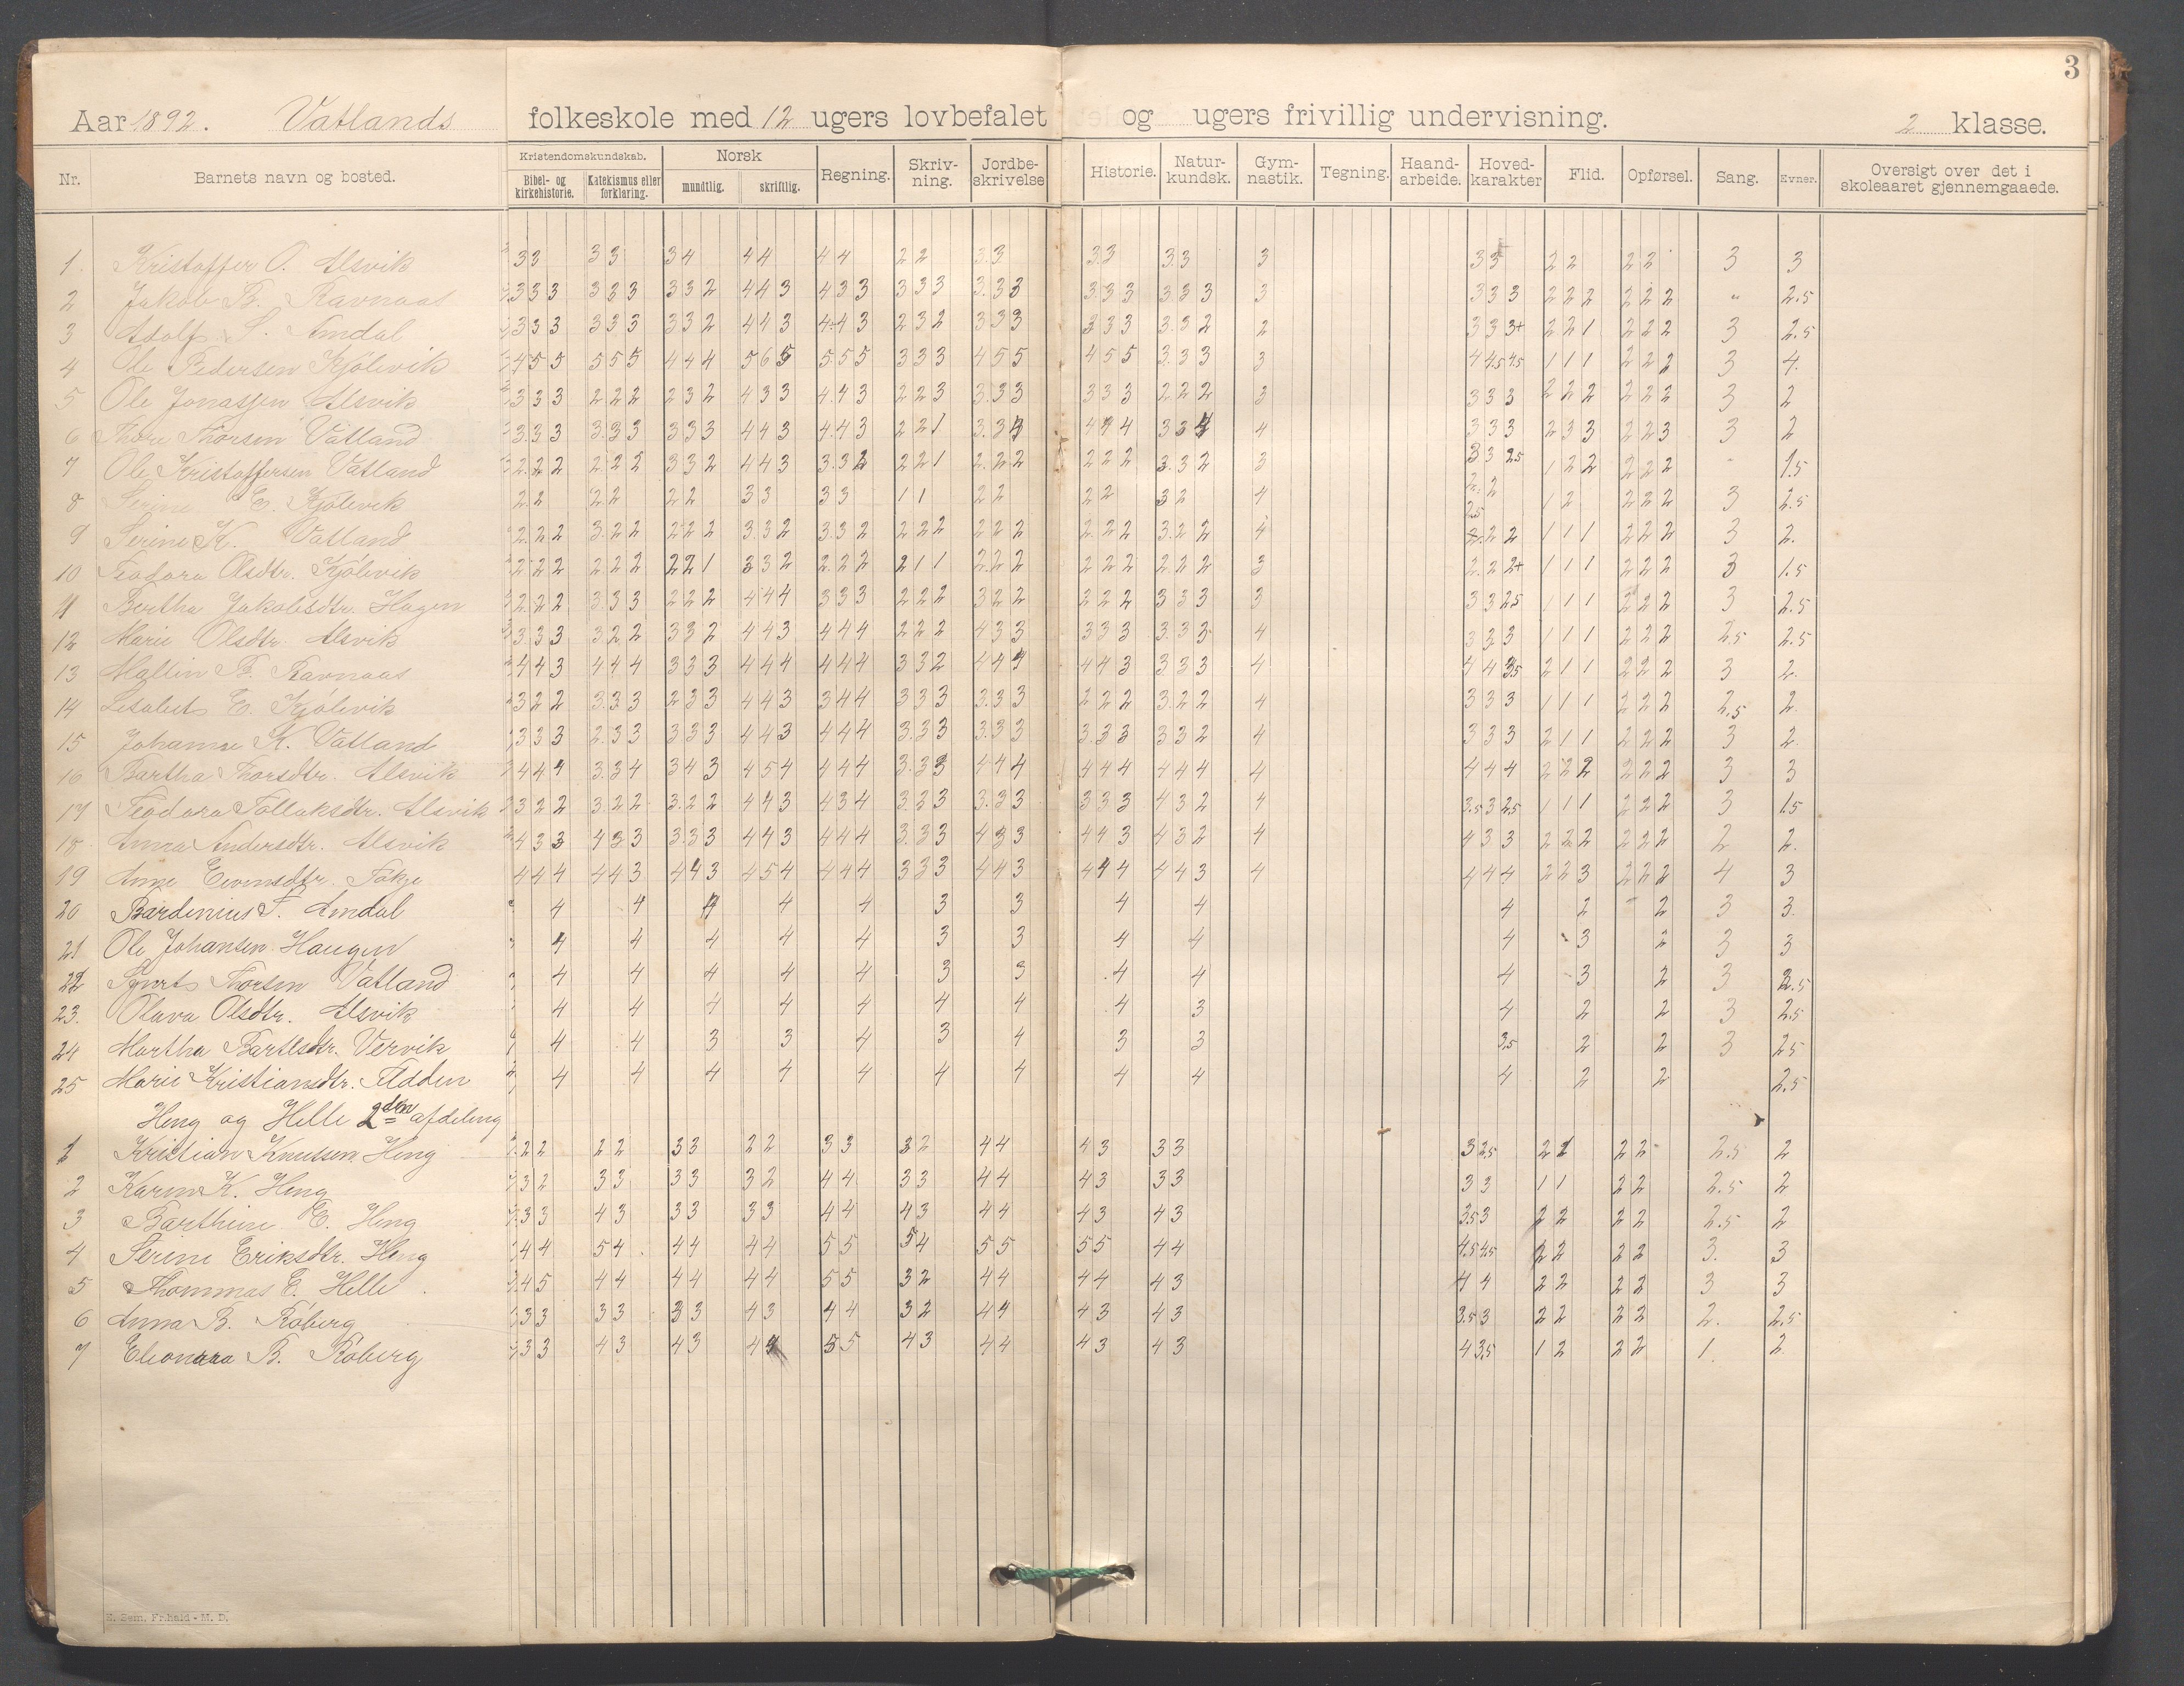 3
Aar 1892. Vatlands folkeskole med 12 ugers lovbefalet og ugers frivillig undervisning. 2 klasse.
Nr. Barnets navn og bosted. Kristendomskundskab. Bibel- og kirkehistorie. Katekismus eller forklaring. Norsk mundtlig. skriftlig. Regning. Skriv-ning. Jordbe-skrivelse Historie. Natur-kundsk. Gym-nastik. Tegning. Haand-arbeide. Hoved-karakter Flid. Opførsel. Sang. Evner. Oversigt over det i skoleaaret gjennemgaaede.
1. Kristoffer O. Alsvik 33 33 34 44 44 22 33 33 33 3 33 22 22 3 3
2 Jakob B. Ravnaas 333 333 332 443 433 333 333 333 333 3 333 222 222 " 2.5
3 Adolf S. Amdal 333 333 332 443 443 232 333 333 332 2 333+ 221 222 3 2.5
4 Ole Pedersen Kjölevik 455 555 444 565 555 333 455 455 333 3 4 4.5 4.5 111 222 3 4.
5 Ole Jonassen Alsvik 333 222 232 433 443 223 333 333 222 3 333 222 222 3 2
6 Thore Thorsen Vatland 333 333 333 443 443 221 334 444 334 4 333 233 223 3 2
7 Ole Kristoffersen Vatland 222 222 332 443 332 221 222 222 332 3 3 3 2.5 122 222 1.5
8 Serine E. Kjölevik 22 22 22 33 33 11 22 22 32 4 2.2 12 222 3 2.5
9 Serine K. Vatland 222 322 222 332 332 222 222 222 322 4 2.5 22 111 222 3 2.
10 Teodora Olsdtr. Kjölevik 222 222 221 332 222 211 222 222 222 3 222+ 111 222 3 1.5
11 Bertha Jakobsdtr. Hagen 222 333 222 444 333 222 322 222 333 3 3 3 2.5 111 222 3 2.5
12 Marie Olsdtr. Alsvik 333 322 332 443 444 222 433 333 333 4 333 111 222 2.5 2.5
13 Mallin B. Ravnaas 443 444 333 444 444 332 444 443 333 4 4 4 3.5 211 222 3 2.
14 Lisabet E. Kjölevik 322 333 233 443 344 333 333 222 322 4 333 111 222 2.5 2.
15 Johanne K. Vatland 333 233 333 443 444 333 333 333 332 4 333 211 222 3 2.
16 Bartha Thorsdtr. Alsvik 444 334 343 454 444 333 444 444 444 4 444 222 222 3 3
17 Teodora Tollaksdtr. Alsvik 322 322 322 443 434 333 333 333 432 4 3.5 3 2.5 111 222 3 1.5
18 Anna Andersdtr. Alsvik 433 433 333 443 444 333 433 443 432 4 433 222 222 2 2.
19 Anne Eivensdtr. Fokje 444 443 443 454 444 333 443 444 443 4 444 223 222 4 3
20 Bardinius T. Amdal 4 4 4 4 4 3 3 4 4 4 2 2 3 3.
21 Ole Johansen Haugen 4 4 4 4 4 3 3 4 4 4 3 2 3 3
22 Sjurts Thorsen Vatland 4 4 4 4 4 3 3 4 4 4 3 2 3 2.5
23. Olava Olsdtr. Alsvik 4 4 4 4 4 4 4 4 3 4 2 2 3 2.5
24 Martha Bartlsdtr. Vervik 4 4 3 3 4 3 4 3 3 3.5 2 2 3 2.5
25 Marie Kristiansdtr. Fidden 4 4 4 4 4 4 4 4 4 4 2 2 2.5
Heng og Helle 2den afdeling
1 Kristian Knutsen Heng 22 22 33 22 33 32 44 43 33 3 2.5 21 22 2.5 2
2 Karen K. Heng 32 33 33 32 44 33 44 43 33 33 11 22 2.5 2
3 Barthine E. Heng 33 43 33 33 44 43 44 43 43 3.5 3 22 22 2.5 2
4 Serine Eriksdtr. Heng 44 54 44 44 55 54 55 55 44 4.5 4.5 22 22 3. 3
5 Thommas E. Helle 45 44 44 44 55 32 44 44 43 44 22 22 3 3
6 Anna B. Röberg 33 33 33 43 44 32 44 43 43 3.5 3 22 22 2. 2.5
7 Eleonora B. Röberg 33 43 43 44 55 43 44 43 43 4 3.5 12 22 1. 2
E. Sem, Fr.hald - M. D.